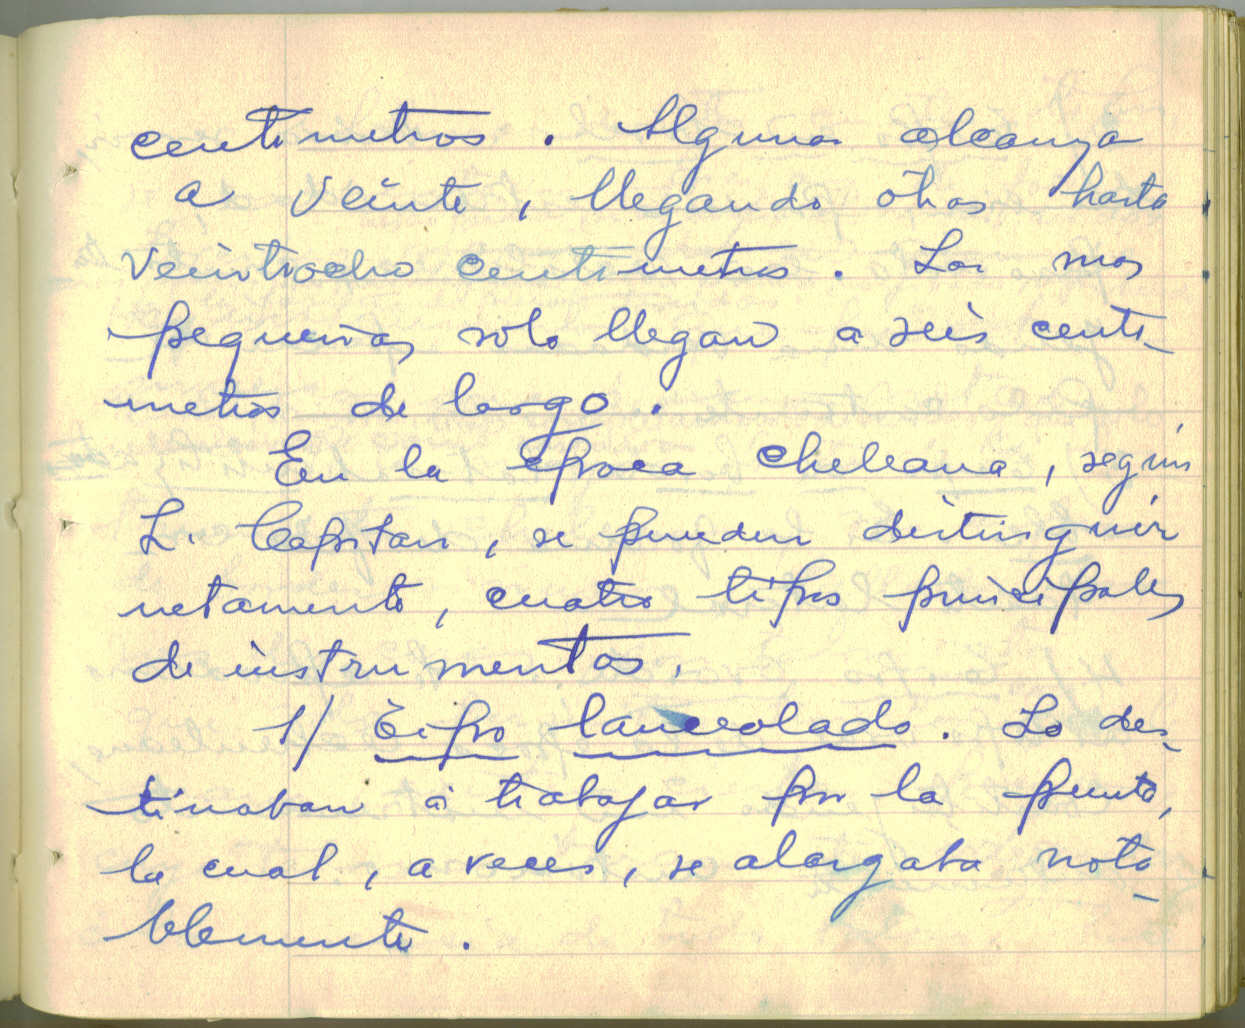 centimetros. Alguna alcanza
a veinte, llegando otras hasta
veintiocho centimetros. Las mas
pequeñas solo llegan a seis centi-
metros de largo.
En la epoca cheleana, según
L. Capitan, se pueden distinguir
netamente, cuatro tipos principales
de instrumentos.
1/ Tipo lanceolado. Lo des-
tinaban a trabajar por la punta,
la cual, a veces, se alargaba nota-
blemente.